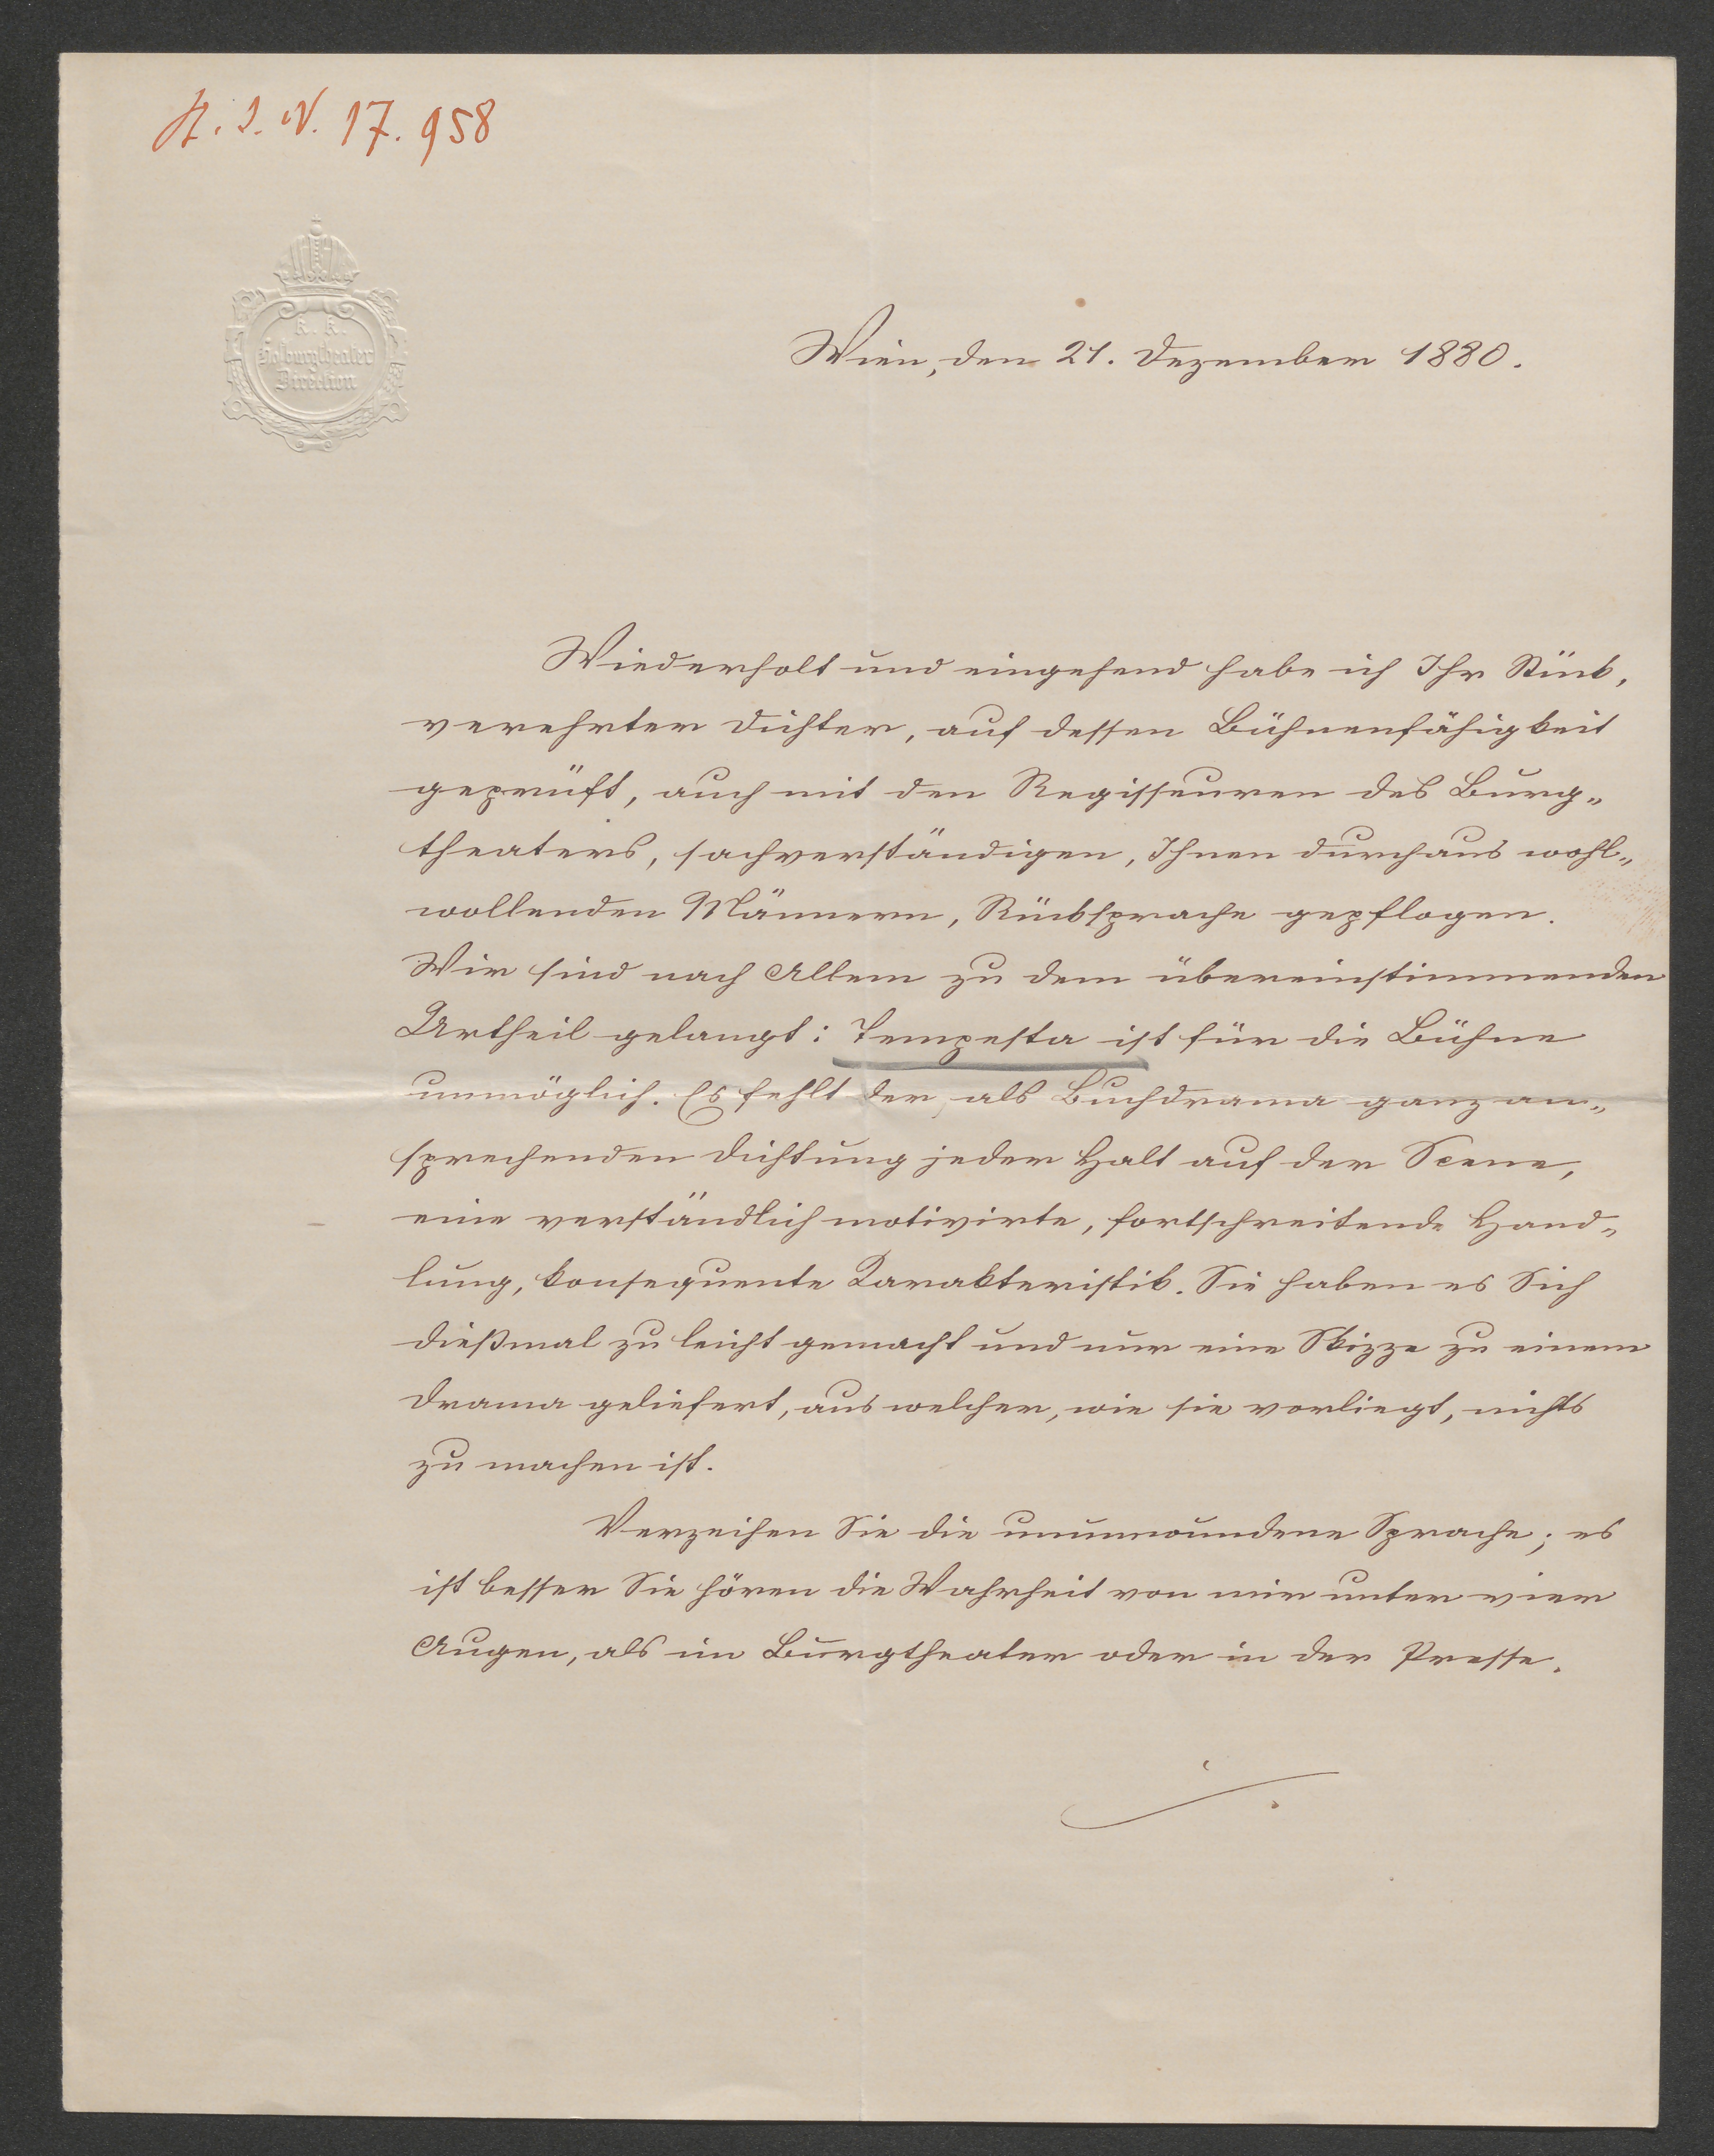 H. I. N. 17.958
K. K.
Hofburgtheater
Direction
Wien, den 21. Dezember 1880.
Wiederholt und eingehend habe ich Ihr Stück,
verehrter Dichter, auf dessen Bühnenfähigkeit
geprüft, auch mit den Regisseuren des Burg„
theaters, sachverständigen, Ihnen durchaus wohl„
wollenden Männern, Rücksprache gepflogen.
Wir sind nach Allem zu dem übereinstimmenden
Urtheil gelangt: Tempesta ist für die Bühne
unmöglich. Es fehlt der, als Buchdrama ganz an„
sprechenden Dichtung jeder Halt auf der Scene,
eine verständlich motivirte, fortschreitende Hand„
lung, konsequente Karakteristik. Sie haben es Sich
dießmal zu leicht gemacht und nur eine Skizze zu einem
Drama geliefert, aus welcher, wie sie vorliegt, nichts
zu machen ist.
Verzeihen Sie die unumwundene Sprache; es
ist besser Sie hören die Wahrheit von mir unter vier
Augen, als im Burgtheater oder in der Presse.